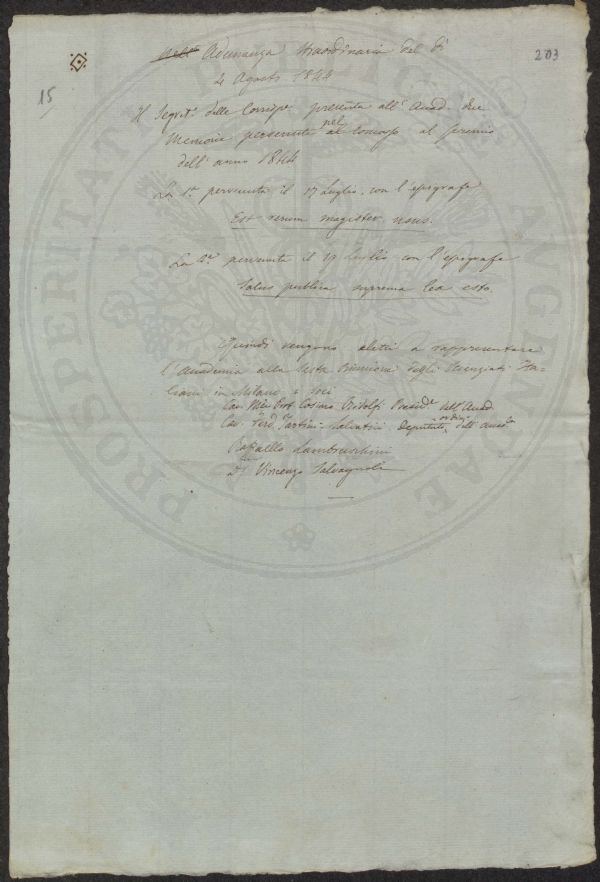 203
15
Adunanza straordinaria del dì
4 Agosto 1844
Il Segret.º delle Corrisp.e presenta all' Accad. due
Memorie pervenute nel concorso al premio
dell' anno 1844
La 1.a pervenuta il 17 Luglio, con l'epigrafe
Est rerum magister usus.
La 2.a pervenuta il 19 Luglio con l'epigrafe
Salus publica suprema lex esto.
Quindi vengono eletti a rappresentare
l'Accademia alla Sesta Riunione degli Scienziati Ita-
liani in Milano i soci
Cav. Mse Cosimo Ridolfi Presid.e dell' Accad.
Cav. Ferd. Tartini-Salvatici Deputato ordin.o dell' Accad.a
Raffaello Lambruschini
Vincenzo Salvagnoli
PROSPERITATI PUBLICAE AUGENDAE